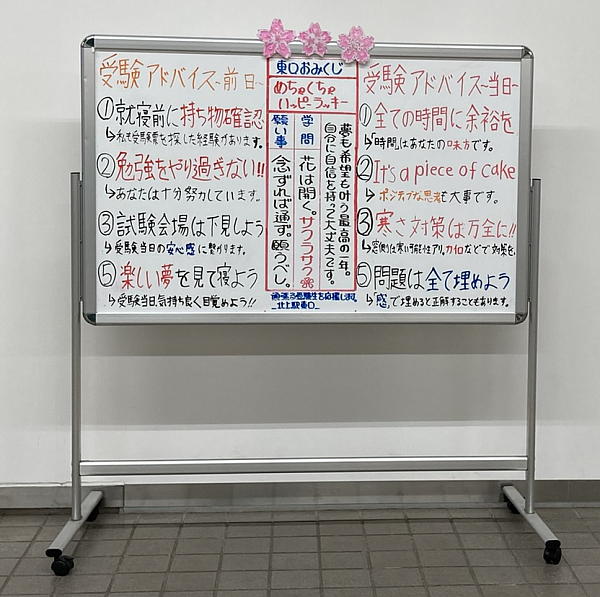 受験アドバイス~前日~
①就寝前に持ち物確認
↳私も受験票を探した経験があります。
②勉強をやり過ぎない!!
↳あなたは十分努力しています。
③試験会場は下見しよう
↳受験当日の安心感に繋がります。
⑤楽しい夢を見て寝よう
↳受験当日、気持ち良く目覚めよう!!
東口おみくじ
めちゃくちゃ
ハッピーラッキー
夢も希望も叶う最高の一年。
自分に自信を持って大丈夫です。
学問 花は開く。サクラサク
願い事 念ずれば通ず。願うべし。
頑張る受験生を応援します。
_北上駅東口_
受験アドバイス~当日~
①全ての時間に余裕を
↳時間はあなたの味方です。
②It's a piece of cake
↳ポジティブな思考も大事です。
③寒さ対策は万全に!!
↳窓側は寒い可能性アリ。カイロなどで対策を。
⑤問題は全て埋めよう
↳「感」で埋めると正解することもあります。